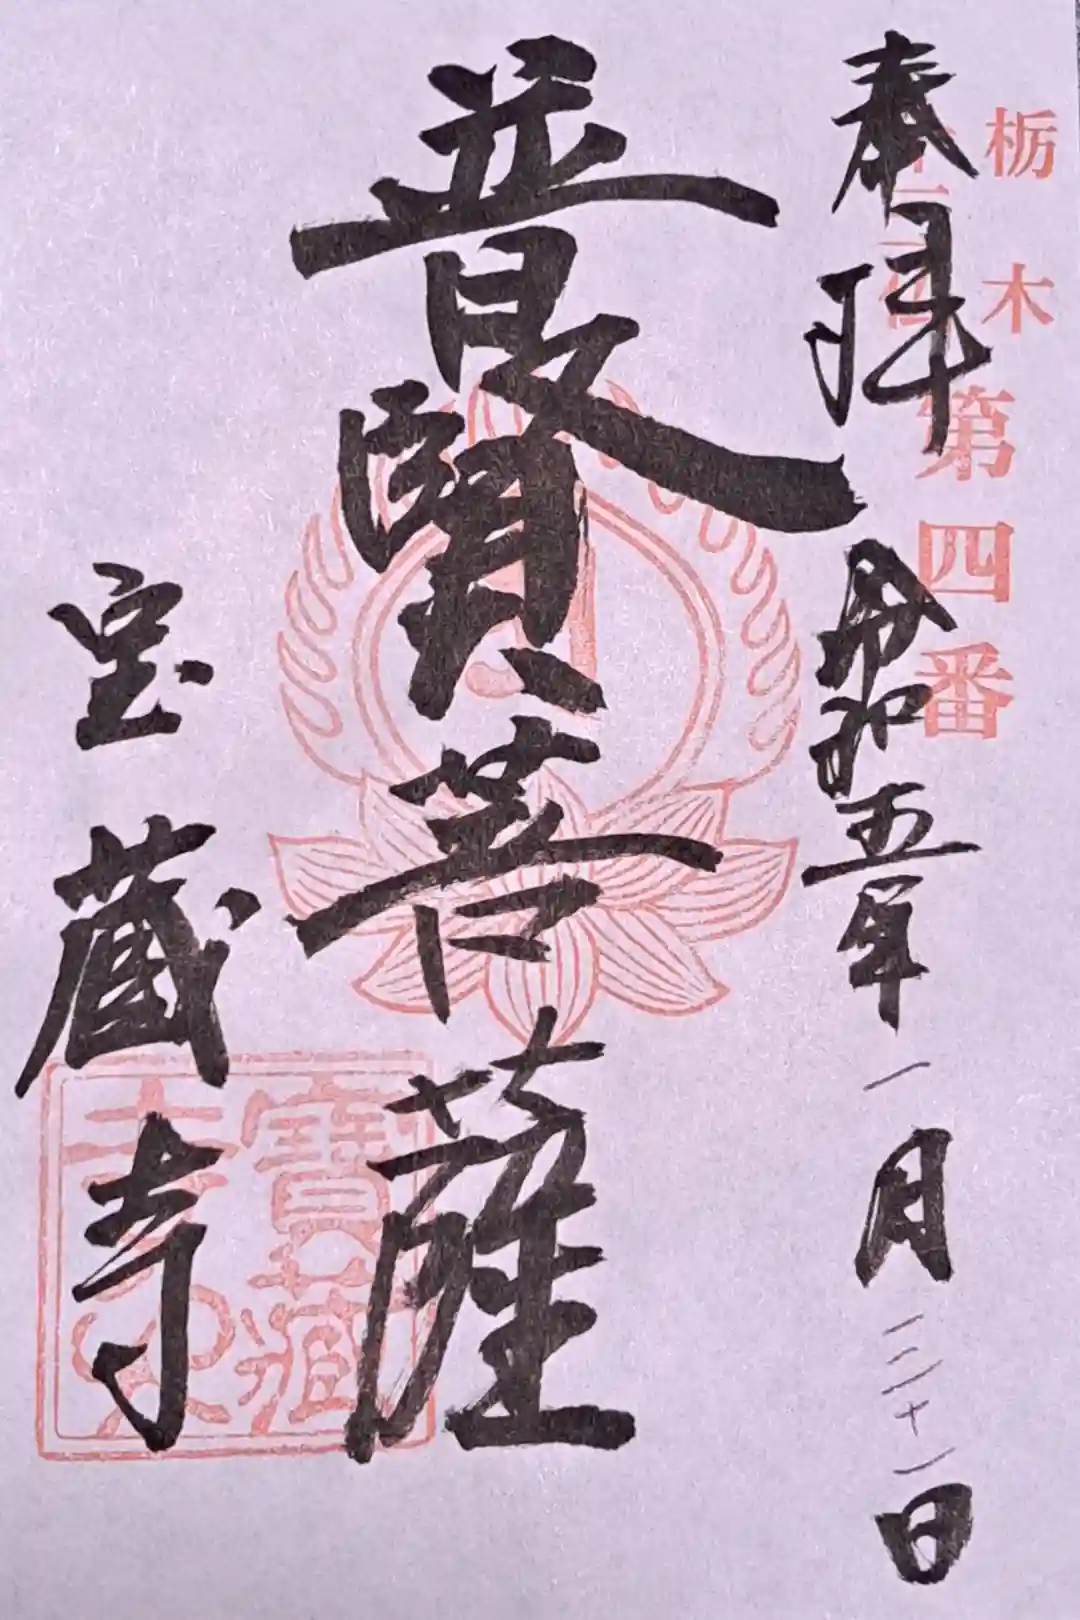 栃木
十三仏
第四番
奉拝
令和五年一月三十一日
普賢菩薩
宝蔵寺
寶藏
寺印